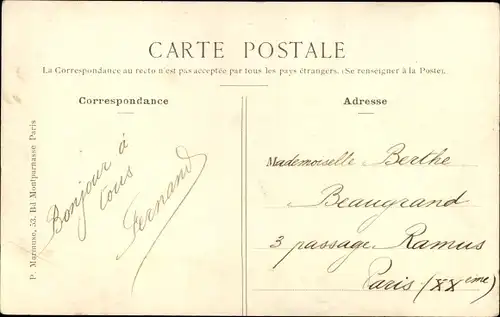 CARTE POSTALE
La Correspondance au recto n'est pas acceptée par tous les pays étrangers. (Se renseigner à la Poste).
Correspondance
Bonjour à
tous
Fernand
P. Marmuse, 53, Bd Montparnasse Paris
Adresse
Mademoiselle Berthe
Beaugrand
3 passage Ramus
Paris (XXème)